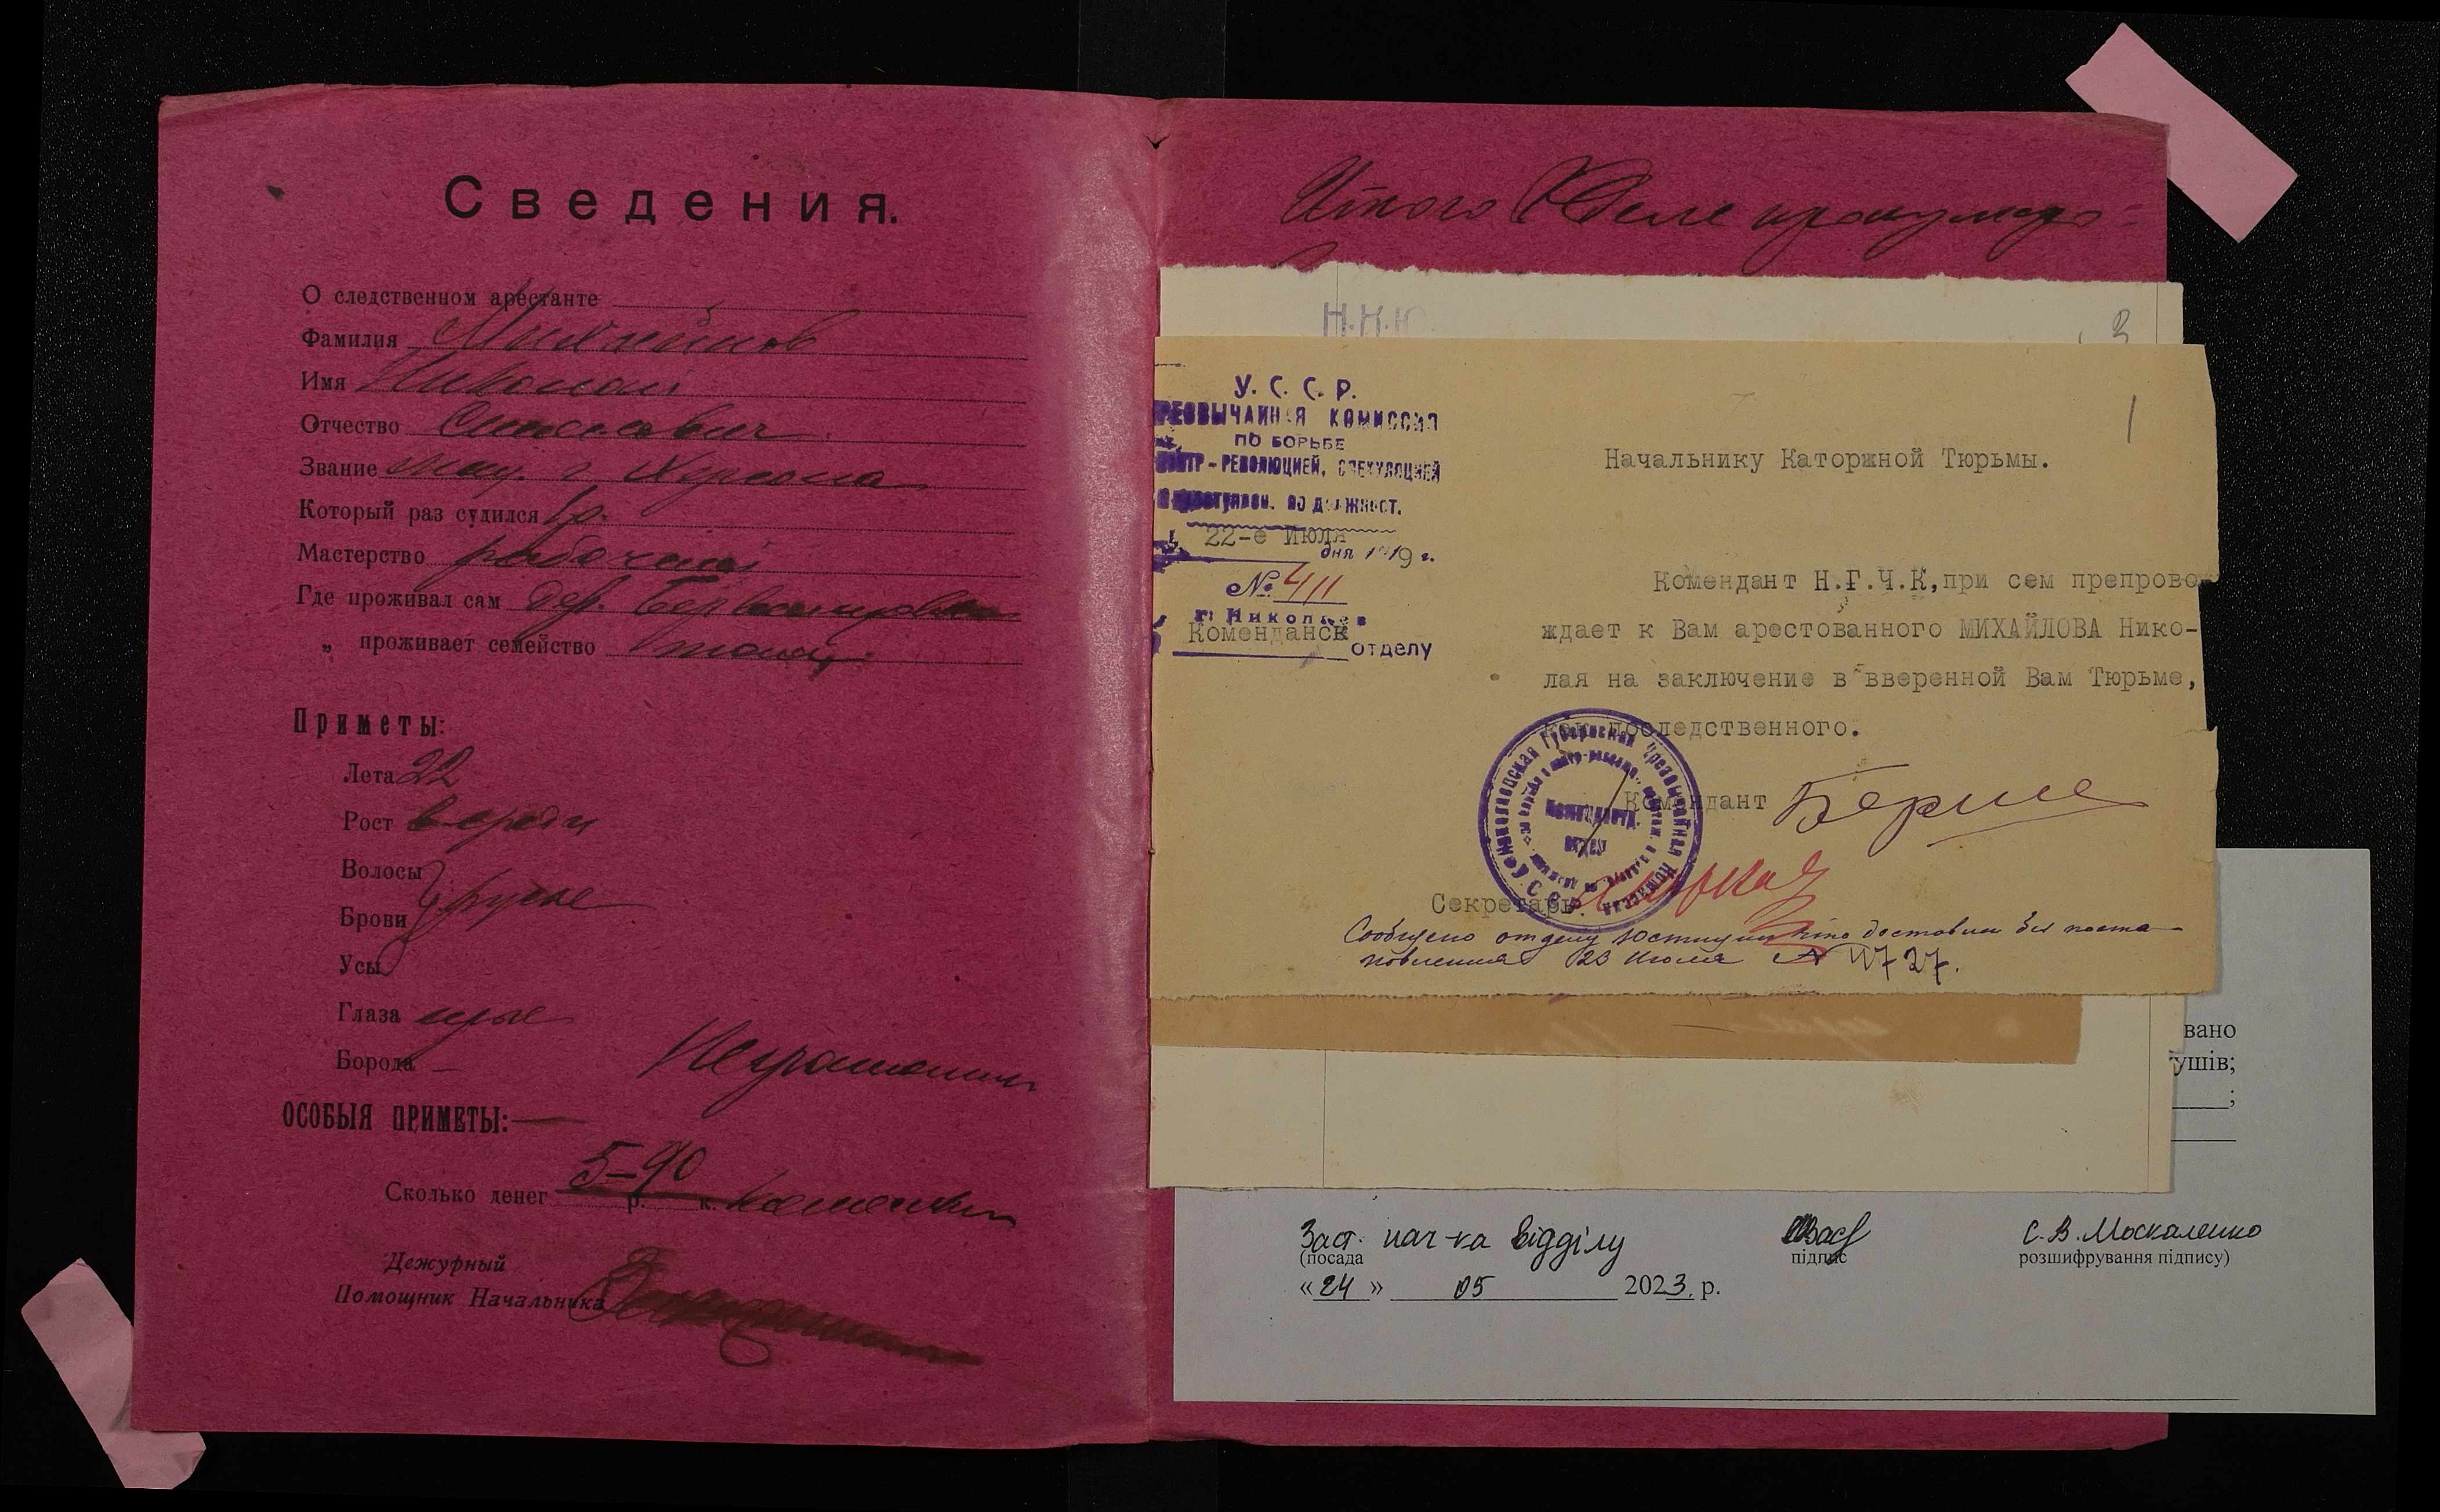 Сведения.
О следственном арестанте
Фамилия Михайлов
Имя Николай
Отчество
Звание мещ. г. Херсона
Который раз судился 1 р.
Мастерство рабочий
Где проживал сам дер.
„ проживает семейство
Приметы:
Лета 22
Рост средн
Волосы
Брови } русые
Усы
Глаза серые
Борода —
ОСОБЫЯ ПРИМЕТЫ: —
Неграмотный
Сколько денег 5-90 р. к.
Дежурный
Помощник Начальника
Итого в деле пронумеро-
Н.К.Ю
3
1
У. С. С. Р.
РЕЗВЫЧАЙНАЯ КОМИССИЯ
ПО БОРЬБЕ
КОНТР-РЕВОЛЮЦИЕЙ, СПЕКУЛЯЦИЕЙ
и преступлен. по должност.
22-е Июля
дня 1919 г.
№ 411
г. Николаев
Комендансk
отделу
Начальнику Каторжной Тюрьмы.
Комендант Н.Г.Ч.К, при сем препрово
ждает к Вам арестованного МИХАЙЛОВА Нико-
лая на заключение в вверенной Вам Тюрьме,
как последственного.
Комендант
Секретарь
Николаевская Губернская Чрезвычайная Комиссия
У.С.С.Р.
Сообщено отделу юстиции что доставлен без поста-
новления 23 Июля № 4727.
вано
ушів;
;
Заст. нач-ка відділу
(посада
підпис
С.В. Москаленко
розшифрування підпису)
« 24 » 05 2023. р.